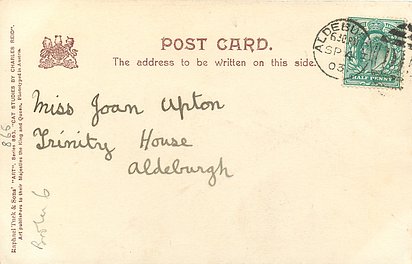 POST CARD.
The address to be written on this side.
ALDEBU
SP
03
HALF PENNY
Miss Joan Upton
Trinity House
Aldeburgh
Raphael Tuck & Sons' "ART" Series 865. "CAT STUDIES BY CHARLES REID".
Art publishers to their Majesties the King and Queen. Phototyped in Austria.
865
6